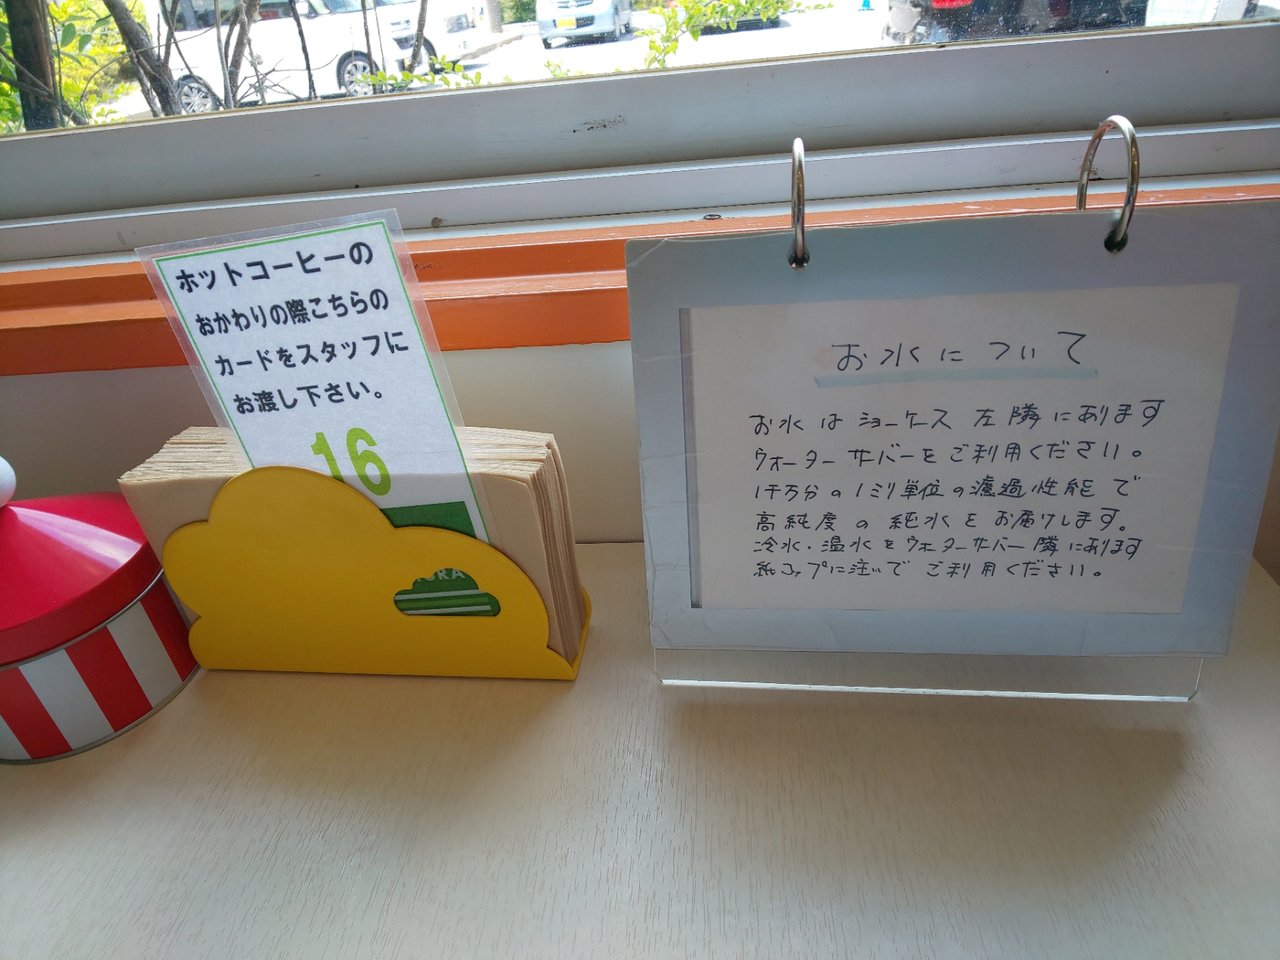 ホットコーヒーの
おかわりの際こちらの
カードをスタッフに
お渡し下さい。
16
お水について
お水はショーケース左隣にあります
ウォーターサーバーをご利用ください。
1千万分の1ミリ単位の濾過性能で
高純度の純水をお届けします。
冷水・温水をウォーターサーバー隣にあります
紙コップに注いでご利用ください。